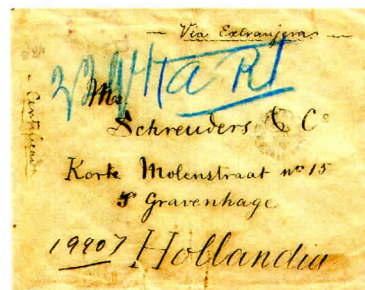 — Via Extranjera —
Certificada
Schreuders & Cº
Korte Molenstraat nº 15
S' Gravenhage
19907 Hollandia